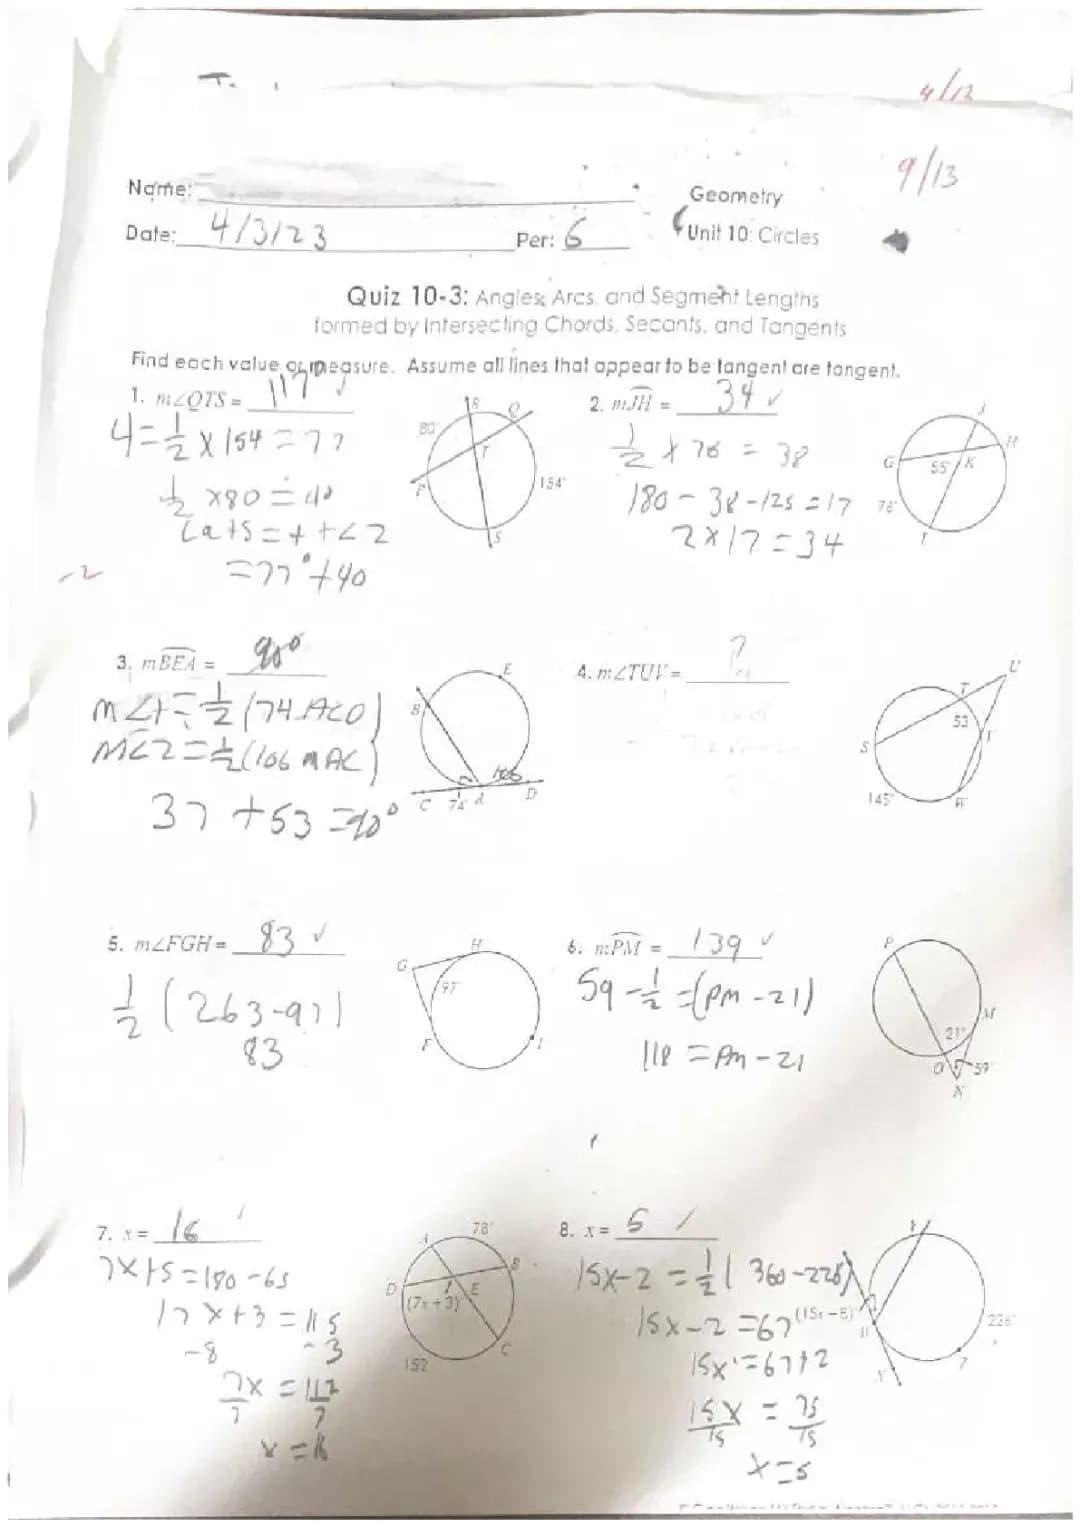 4/13
9/13
Name:
Geometry
Date: 4/3/23 Per: 6
Unit 10: Circles
Quiz 10-3: Angles, Arcs, and Segment Lengths
formed by Intersecting Chords, Secants, and Tangents
Find each value or measure. Assume all lines that appear to be tangent are tangent.
1. m∠QTS = 117 ✓
4 = 1/2 x 154 = 77
1/2 x80 = 40
= 77° + 40
-2
R
Q
80°
T
154°
P
S
2. mJH = 34 ✓
1/2 x 76 = 38
180 - 38 - 125 = 17
2 x 17 = 34
J
H
G
55°
K
76°
I
3. mBEA = 90°
37 + 53 = 90°
E
B
106
C 74° A D
4. m∠TUV = ?
U
T
53
V
S
145°
W
5. m∠FGH = 83 ✓
1/2 (263-97)
83
H
G
97°
F
I
6. mPM = 139 ✓
59 - 1/2 = (PM - 21)
118 = PM - 21
P
M
21°
O
59°
N
7. x = 16
7x+5 = 180 - 65
17x+3 = 115
-8 -3
7x = 112
7 7
x = 16
78°
A
B
D
(7x+3)°
E
C
152°
8. x = 5
15x-2 = 1/2 ( 360-226)
15x-2 = 67
15x = 67+2
15x = 75
15 15
x = 5
(15x-8)°
226°